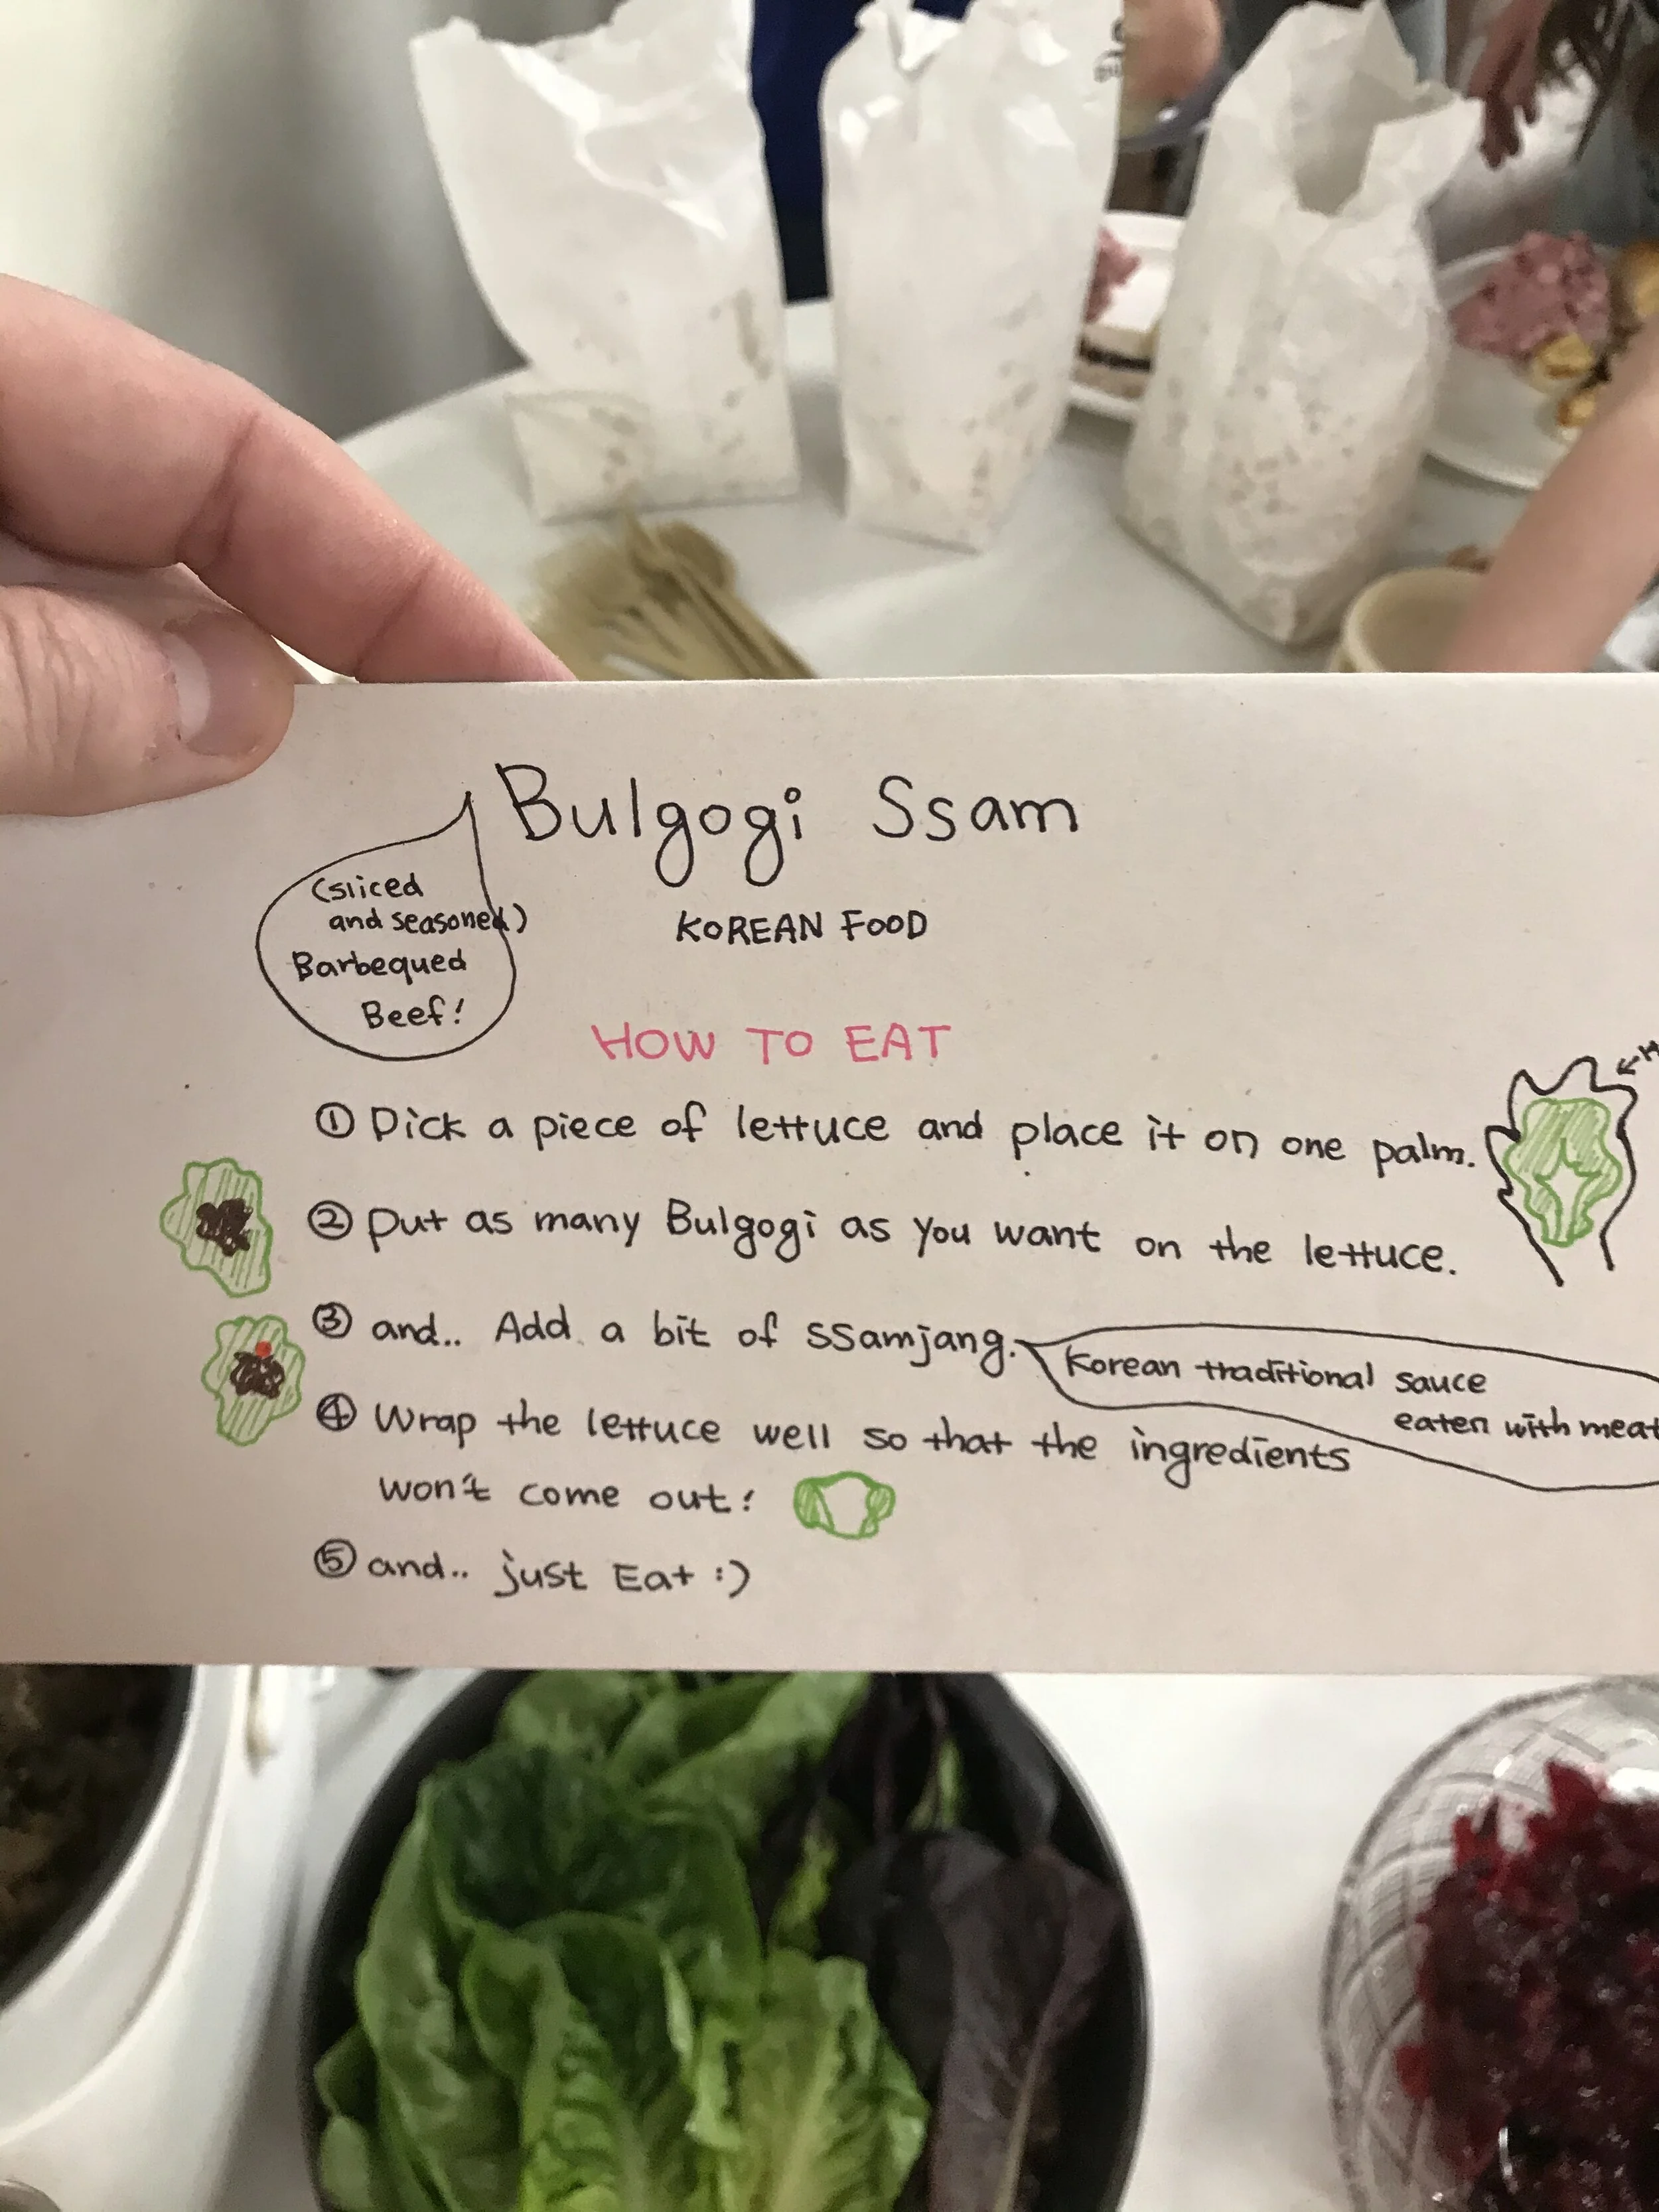 Bulgogi Ssam
(sliced
and seasoned)
Barbequed
Beef!
KOREAN FOOD
HOW TO EAT
① Pick a piece of lettuce and place it on one palm.
② Put as many Bulgogi as you want on the lettuce.
③ and.. Add a bit of ssamjang.
Korean traditional sauce
eaten with meat
④ Wrap the lettuce well so that the ingredients
won't come out!
⑤ and.. just Eat :)